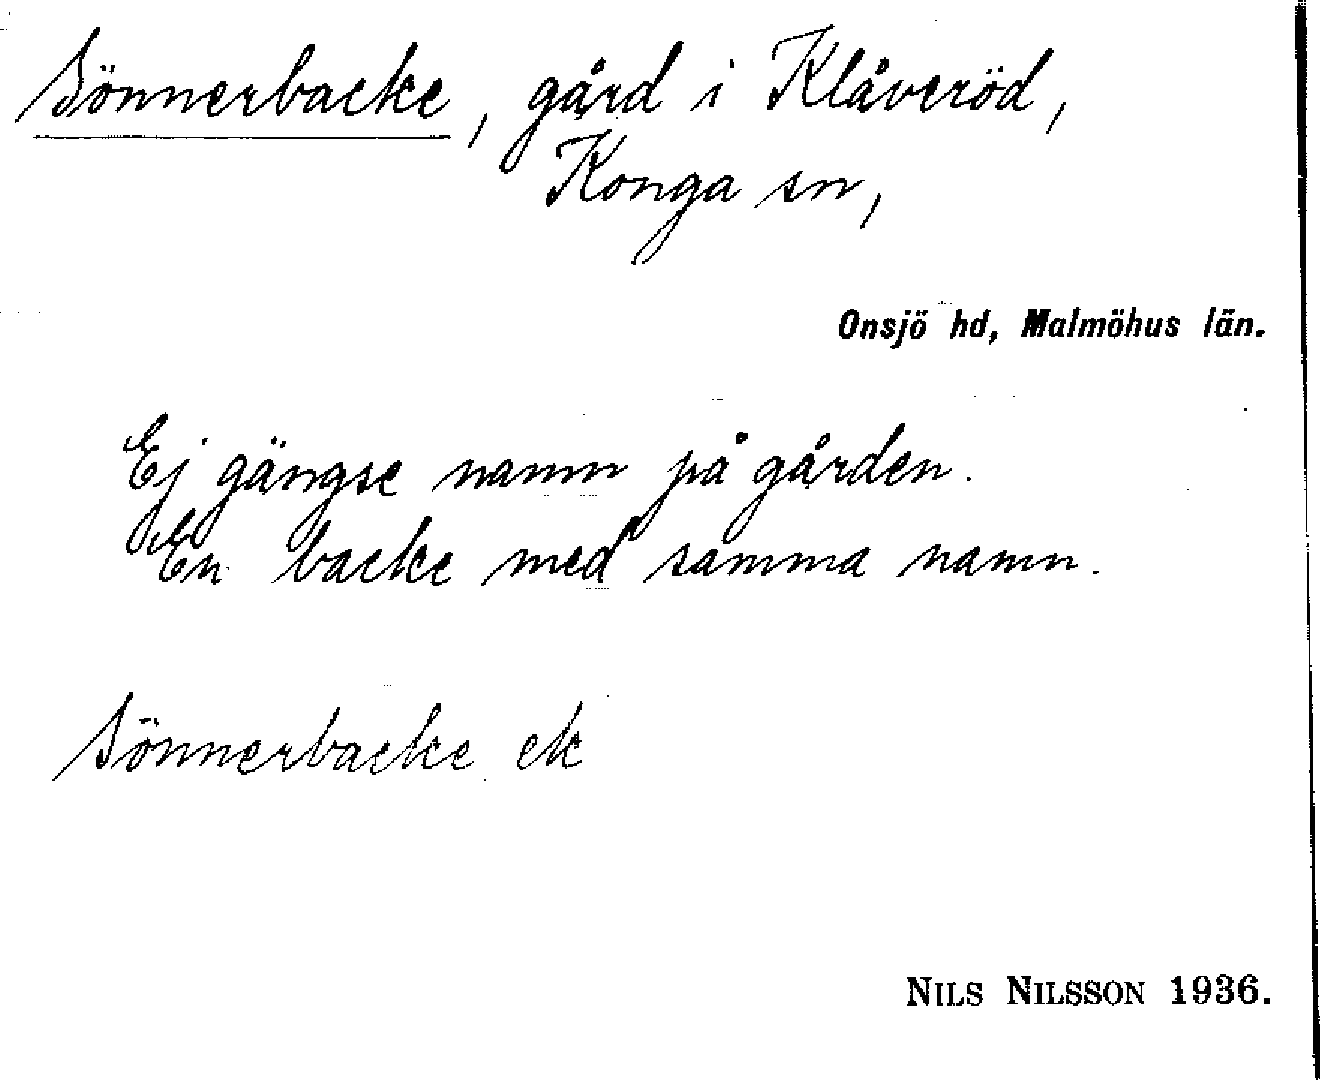 Sönnerbacke, gård i Klåveröd,
Konga sn,
Onsjö hd, Malmöhus län.
Ej gängse namn på gården.
En backe med samma namn.
Sönnerbacke ek
NILS NILSSON 1936.